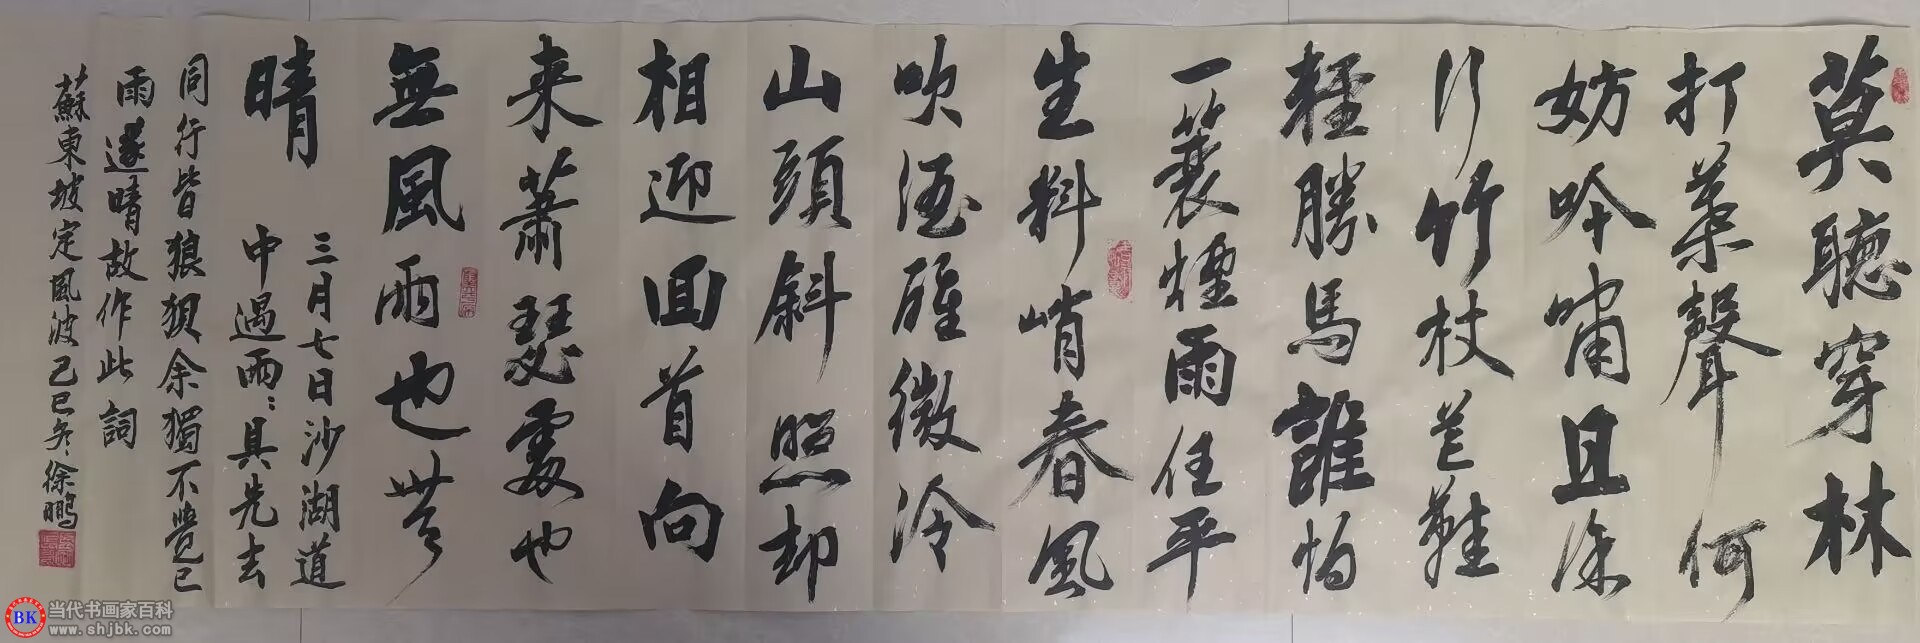 莫聽穿林
打葉聲何
妨吟嘯且徐
行竹杖芒鞋
輕勝馬誰怕
一蓑煙雨任平
生料峭春風
吹酒醒微冷
山頭斜照却
相迎囬首向
来蕭瑟處也
無風雨也無
晴
三月七日沙湖道
中遇雨:具先去
同行皆狼狽余獨不覺已
雨遂晴故作此詞
蘇東坡定風波己巳冬徐鵬
BK 当代书画家百科
www.shjbk.com